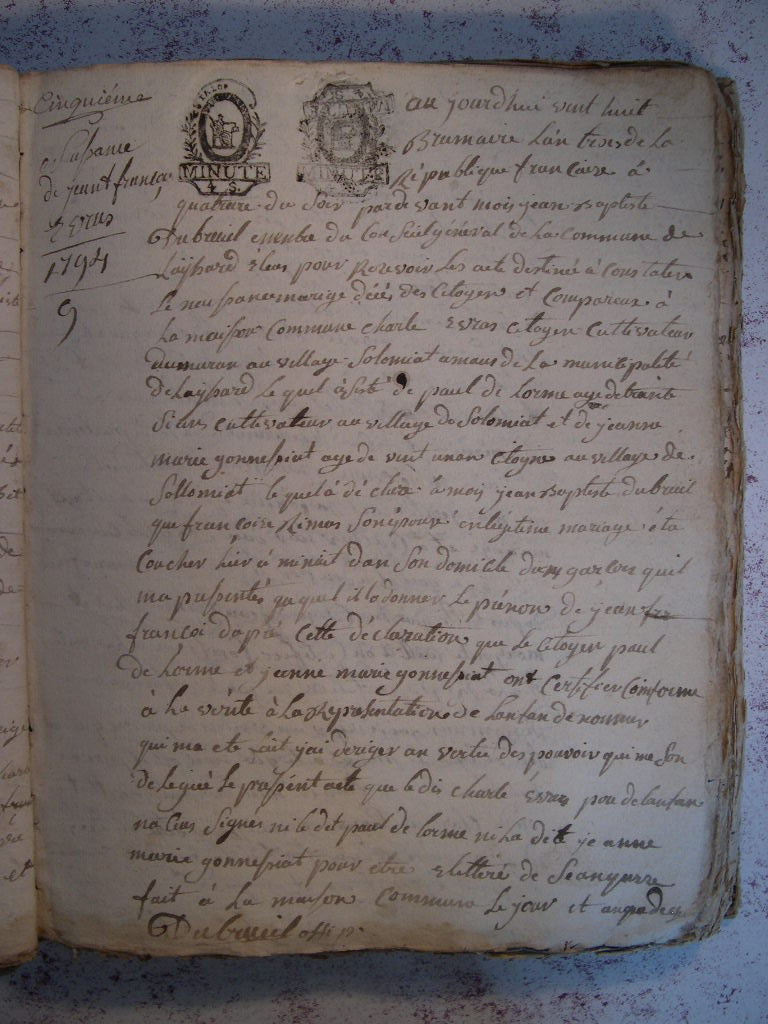 Cinquiéme
de jean françoi
Evras
1794
9
MINUTE
4. S.
MINUTE
au jourdhui vint huit
Brumaire Lan trois de La
République francaise à
quatrure du Soir pardevant moi jean Baptiste
Dubreuil membre du Conseil général de La Commune de
pour Recevoir Les acte destiné à Constater
Le neussance marige décés des Citoyen et Compareux à
La maison Commune Charle Evras Citoyen Cultivateur
au village Solomiat de La municipalité
de Layssard Le quel de paul de Lorme age de trante
Cultivateur au village de Solomiat et de jeanne
marie gonnessiat age de vint unan Citoyne au village de
Sollomiat le quel à dé clare à moi jean Baptiste dubreuil
que francoise Son épouse en légitime mariage éta
Coucher hier à minuit dan Son domicile dun garson quil
ma pressentés quel il la donner Le prénon de jean
françoi dapré Cette déclaration que Le Citoyen paul
de Lorme et jeanne marie gonnessiat ont Certifier Conforme
à La vérite à La Représentation de Lanfan dénommer
qui ma eté fait jai deriger an vertue des pouvoir qui me Son
delegué Le pressent acte que Le dis Charle Evras de Lanfan
na Ceus Signer ni le dit paul de Lorme ni La dite jeanne
marie gonnessiat pour etre
fait à La maison Commune Le jour et
Dubreuil offi p.